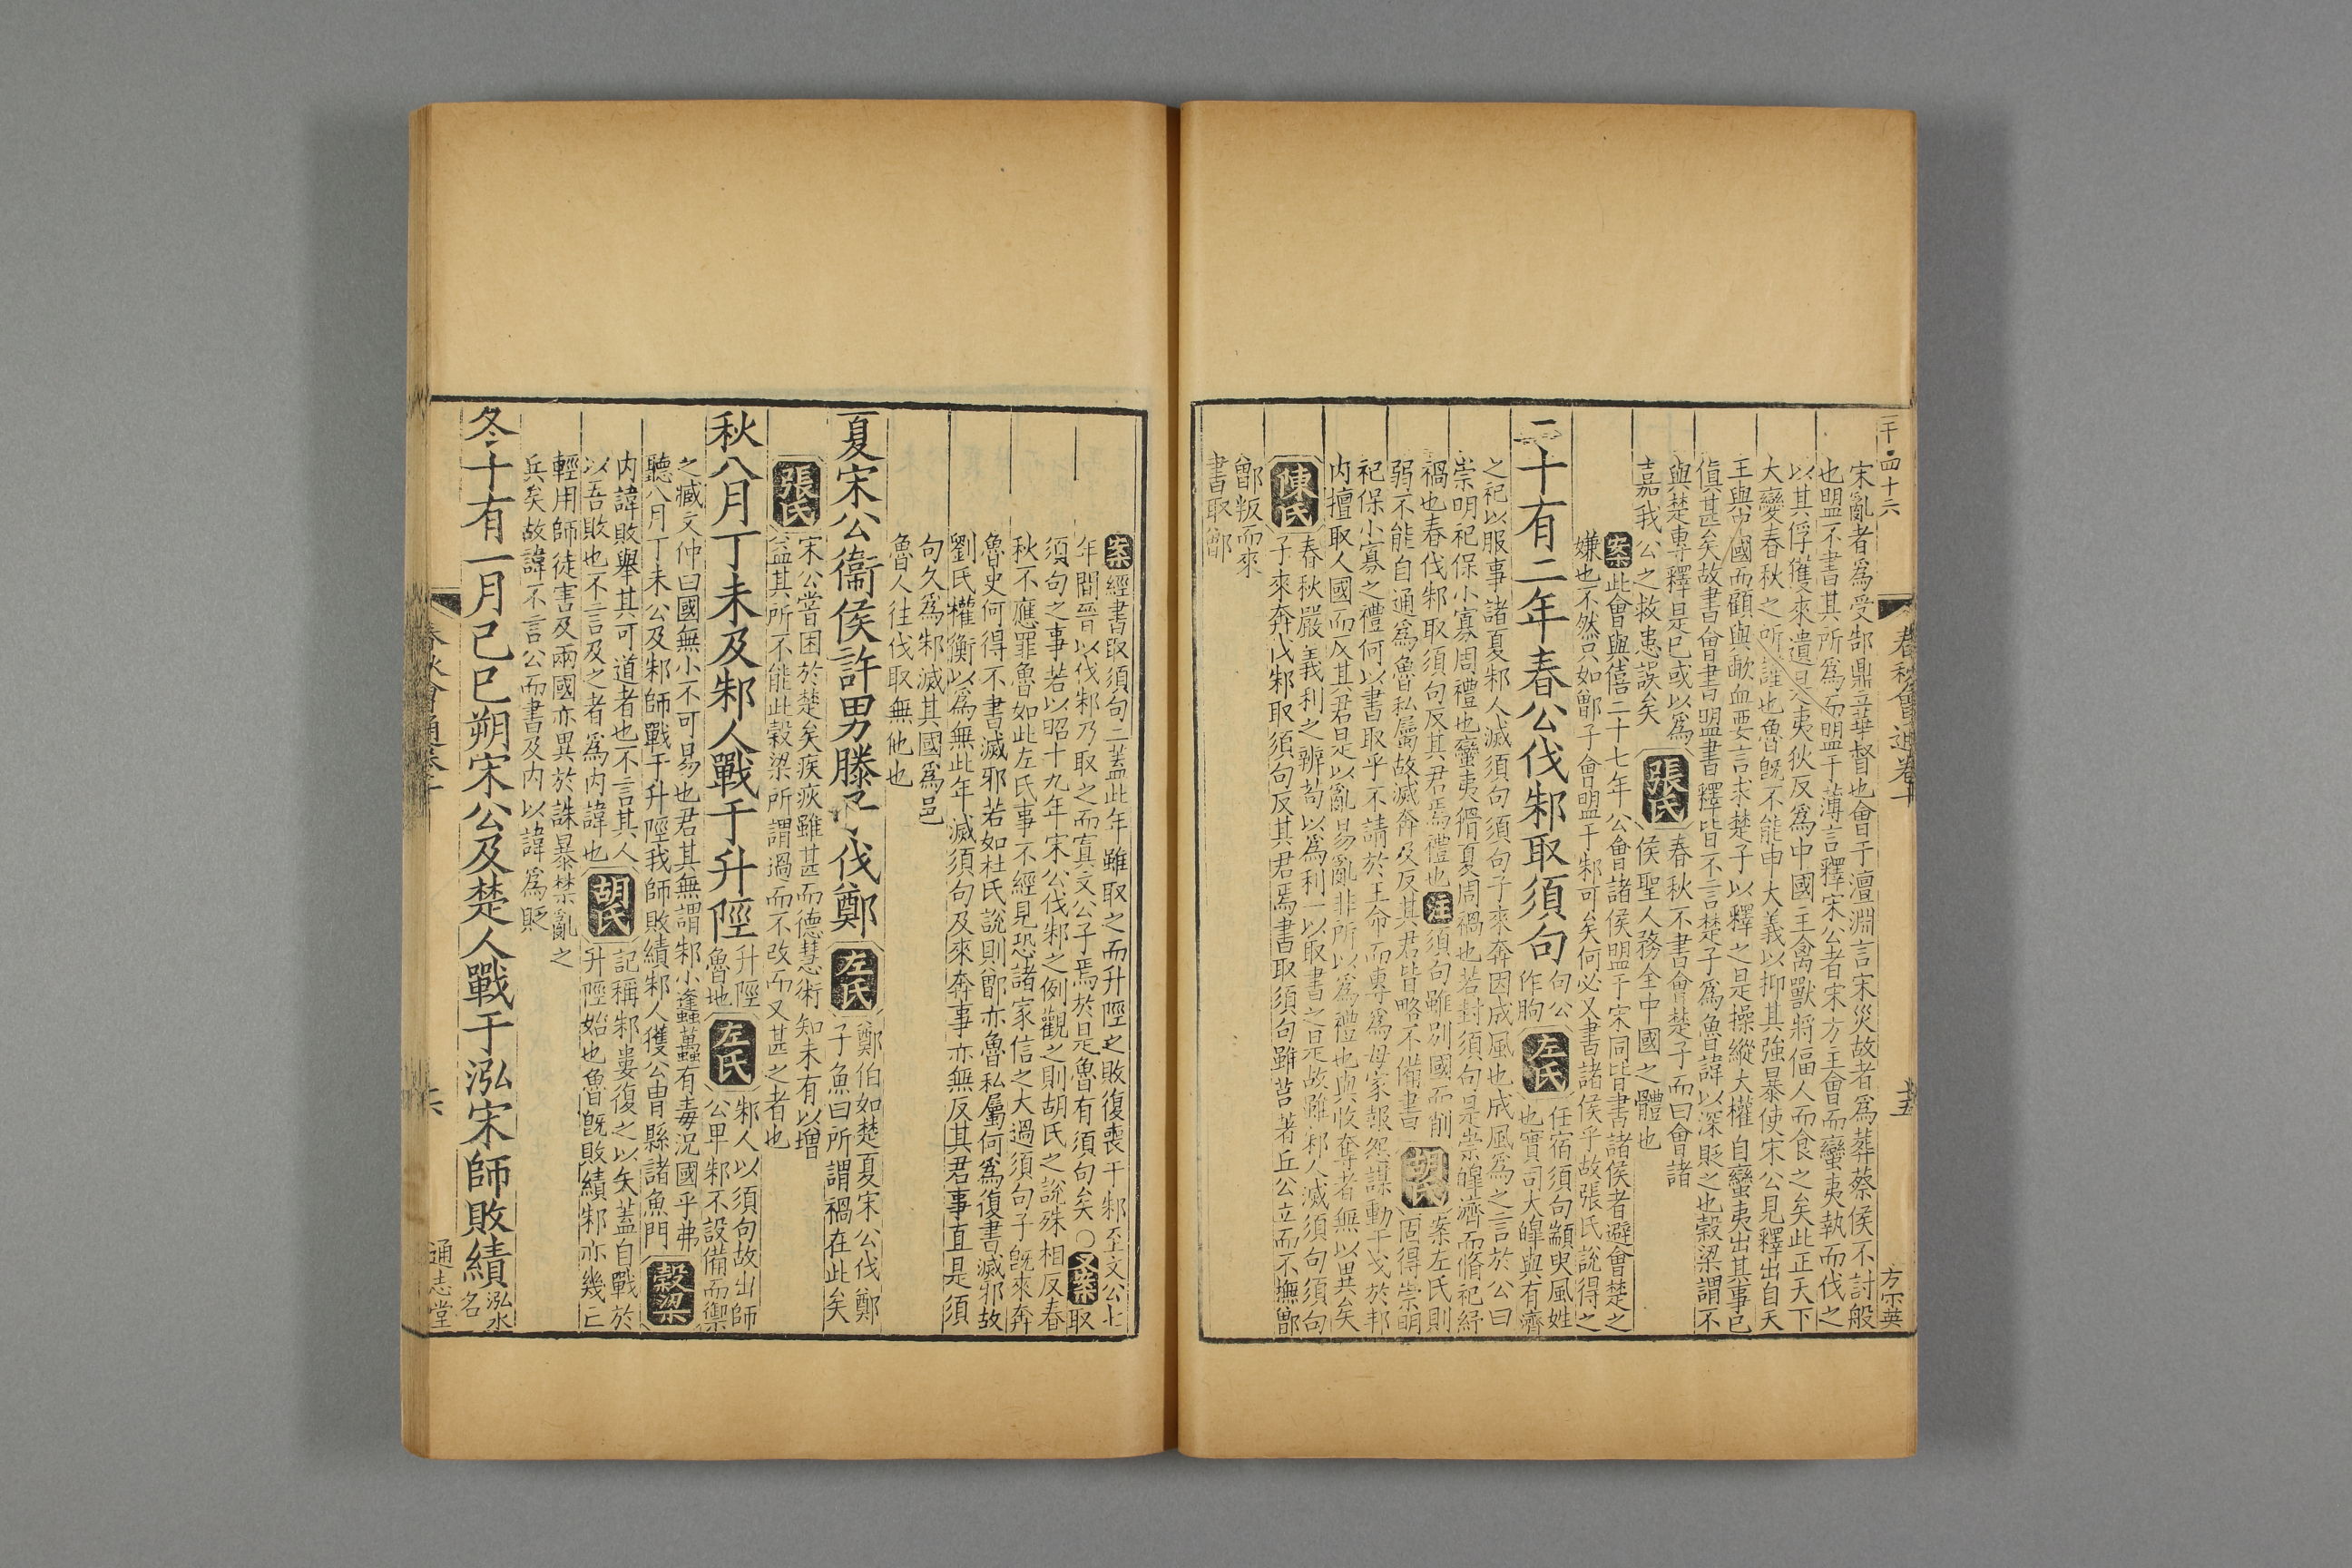 千四十六
春秋會通卷十
十五
方宗英
宋亂者爲受郜鼎立華督也會于澶淵言宋災故者爲葬蔡侯不討般
也盟不書其所爲而盟于薄言釋宋公者宋方主會而蠻夷執而伐之
以其俘獲來遺是夷狄反爲中國主禽獸將偪人而食之矣此正天下
大變春秋之所謹也魯既不能申大義以抑其強暴使宋公見釋出自天
王與中國而顧與歃血要言求楚子以釋之是操縱大權自蠻夷出其事已
傎甚矣故書會書盟書釋皆不言楚子爲魯諱以深貶之也穀梁謂不
與楚專釋是已或以爲
嘉我公之救患誤矣
張氏
春秋不書會楚子而曰會諸
侯聖人務全中國之體也
案此會與僖二十七年公會諸侯盟于宋同皆書諸侯者避會楚之
嫌也不然只如鄫子會盟于邾可矣何必又書諸侯乎故張氏說得之
二十有二年春公伐邾取須句
句公
作朐
左氏
任宿須句顓臾風姓
也實司大皥與有濟
之祀以服事諸夏邾人滅須句須句子來奔因成風也成風爲之言於公曰
崇明祀保小寡周禮也蠻夷猾夏周禍也若封須句是崇皥濟而脩祀紓
禍也春伐邾取須句反其君焉禮也注須句雖別國而削
弱不能自通爲魯私屬故滅奔及反其君皆略不備書
胡氏
案左氏則
固得崇明
祀保小寡之禮何以書取乎不請於王命而專爲母家報怨謀動干戈於邦
内擅取人國而反其君是以亂易亂非所以爲禮也與收奪者無以異矣
陳氏
春秋嚴義利之辨苟以爲利一以取書之是故雖邾人滅須句須句
子來奔伐邾取須句反其君焉書取須句雖莒著丘公立而不撫鄫
鄫叛而來
書取鄫
案經書取須句二蓋此年雖取之而升陘之敗復喪于邾至文公七
年間晉以伐邾乃取之而寘文公子焉於是魯有須句矣○又案取
須句之事若以昭十九年宋公伐邾之例觀之則胡氏之說殊相反春
秋不應罪魯如此左氏事不經見恐諸家信之大過須句子既來奔
魯史何得不書滅邪若如杜氏說則鄫亦魯私屬何爲復書滅邪故
劉氏權衡以爲無此年滅須句及來奔事亦無反其君事直是須
句久爲邾滅其國爲邑
魯人往伐取無他也
夏宋公衞侯許男滕子伐鄭
左氏
鄭伯如楚夏宋公伐鄭
子魚曰所謂禍在此矣
張氏
宋公嘗困於楚矣疾疢雖甚而德慧術知未有以增
益其所不能此穀梁所謂過而不改而又甚之者也
秋八月丁未及邾人戰于升陘
升陘
魯地
左氏
邾人以須句故出師
公卑邾不設備而禦
之臧文仲曰國無小不可易也君其無謂邾小蠭蠆有毒況國乎弗
聽八月丁未公及邾師戰于升陘我師敗績邾人獲公胄縣諸魚門
穀梁
内諱敗舉其可道者也不言其人
以吾敗也不言及之者爲内諱也
胡氏
記稱邾婁復之以矢蓋自戰於
升陘始也魯既敗績邾亦幾亡
輕用師徒害及兩國亦異於誅暴禁亂之
兵矣故諱不言公而書及内以諱爲貶
冬十有一月己巳朔宋公及楚人戰于泓宋師敗績
泓水
名
春秋會通卷十
十六
通志堂